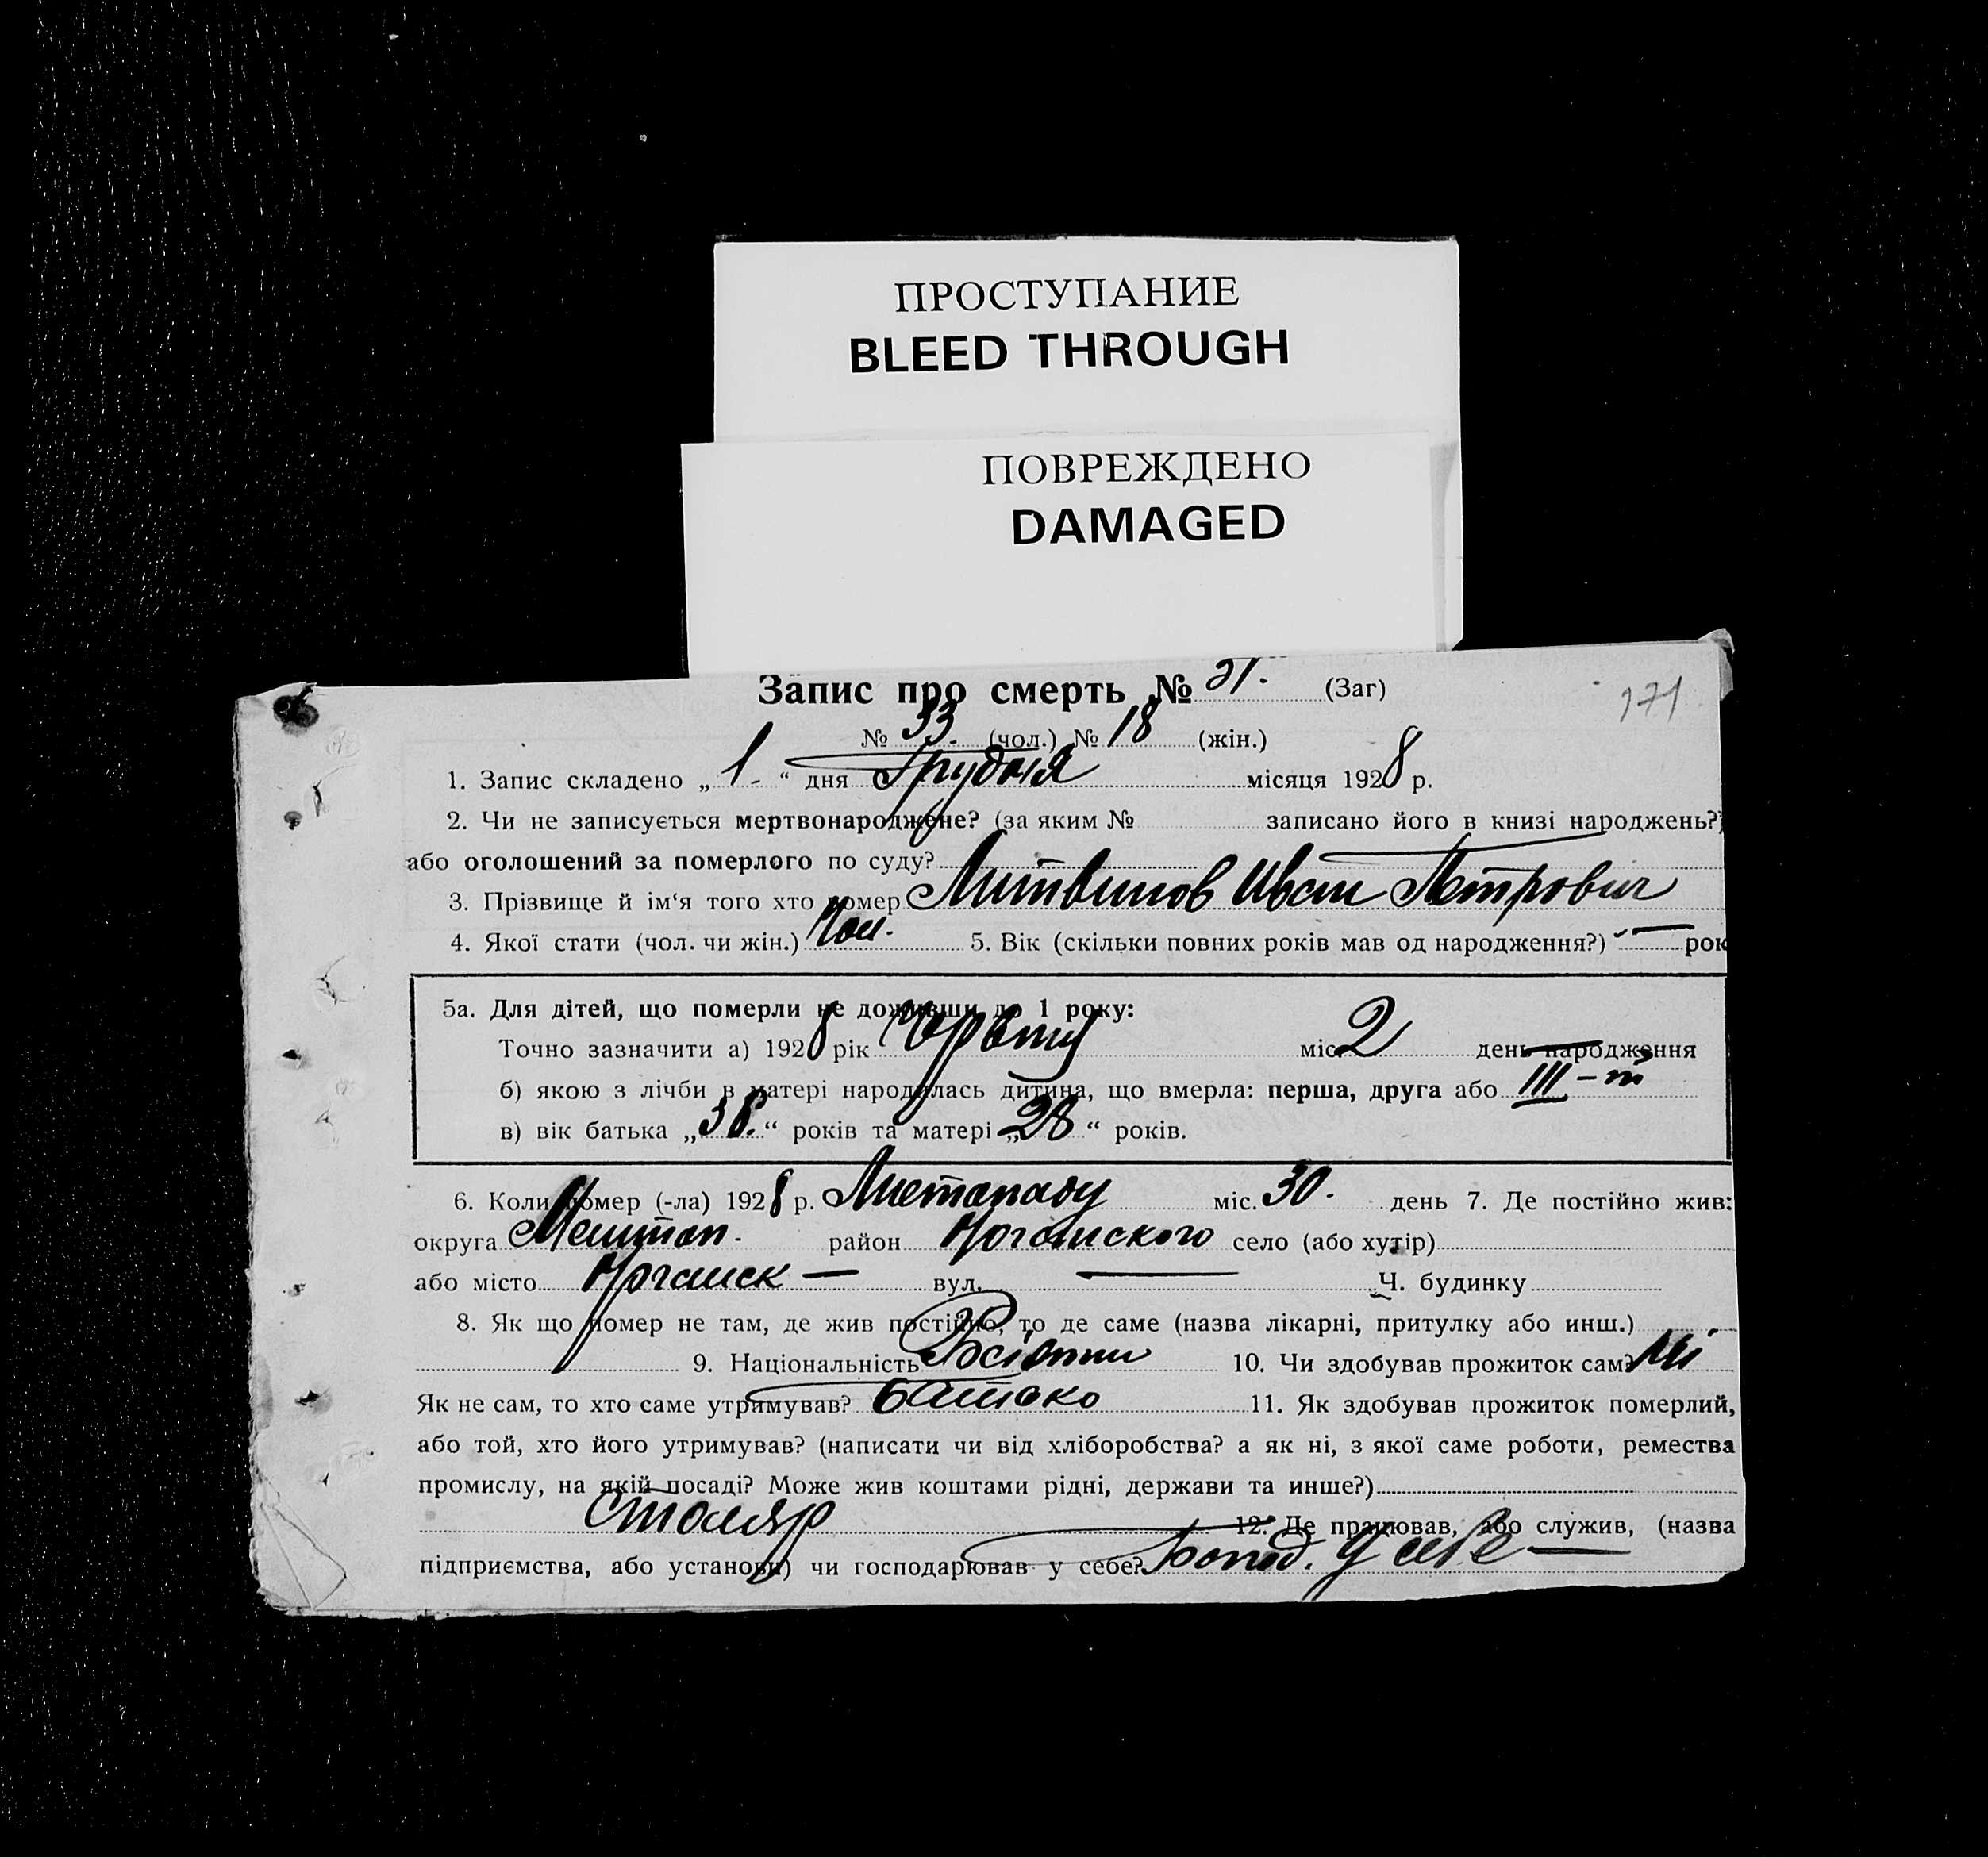 ПРОСТУПАНИЕ
BLEED THROUGH
ПОВРЕЖДЕНО
DAMAGED
Запис про смерть № 51. (Заг)
171
№ 33. (чол.) № 18 (жін.)
1. Запис складено „1.“ дня Грудня місяця 1928 р.
2. Чи не записується мертвонароджене? (за яким № записано його в книзі народжень?)
або оголошений за померлого по суду?
3. Прізвище й ім‘я того хто помер Литвинов Иван Петрович
4. Якої стати (чол. чи жін.) Чол. 5. Вік (скільки повних років мав од народження?) — рок
5а. Для дітей, що померли не доживши до 1 року:
Точно зазначити а) 1928 рік Червня міс. 2 день народження
б) якою з лічби в матері народилась дитина, що вмерла: перша, друга або III-т
в) вік батька „38.“ років та матері „28“ років.
6. Коли помер (-ла) 1928 р. Листопаду міс. 30. день 7. Де постійно жив:
округа район село (або хутір)
або місто — вул. — Ч. будинку
8. Як що помер не там, де жив постійно, то де саме (назва лікарні, притулку або инш.)
9. Національність 10. Чи здобував прожиток сам? Ні
Як не сам, то хто саме утримував? Батько 11. Як здобував прожиток померлий,
або той, хто його утримував? (написати чи від хліборобства? а як ні, з якої саме роботи, ремества
промислу, на якій посаді? Може жив коштами рідні, держави та инше?)
Столяр 12. Де працював, або служив, (назва
підприємства, або установи) чи господарював у себе? У себе —